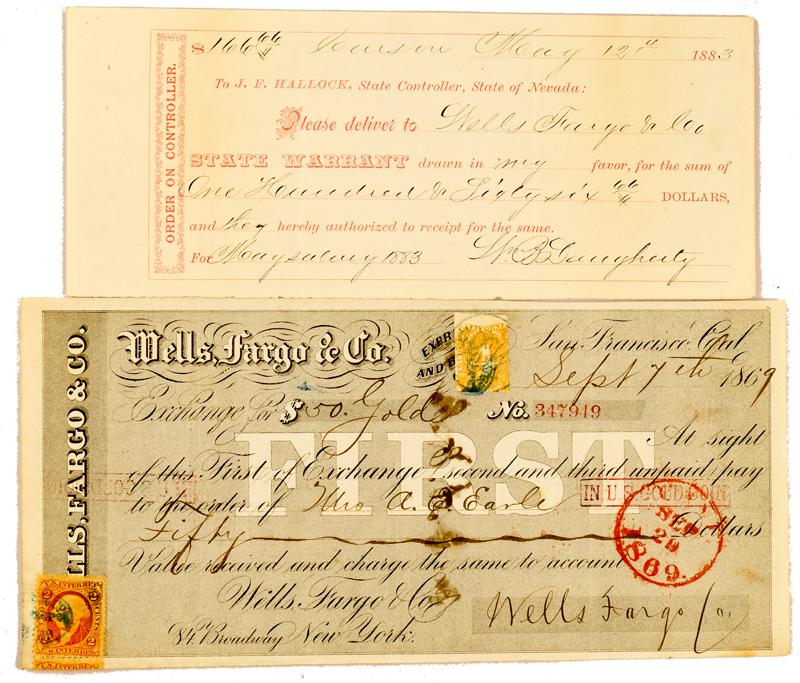 ORDER ON CONTROLLER.
$166 66/ Carson May 12th 1883
To J. F. HALLOCK, State Controller, State of Nevada:
Please deliver to Wells Fargo & Co
STATE WARRANT drawn in my favor, for the sum of
One Hundred & Sixty six 66/ DOLLARS,
and they hereby authorized to receipt for the same.
For May salary 1883 Daugherty
WELLS, FARGO & CO.
Wells, Fargo & Co. San Francisco, Cal
AND Sept 7th 1869
Exchange for $50. Gold No. 347949
FIRST
At sight
of this First of Exchange (second and third unpaid) pay
to the order of Mrs A. E. Earle IN U.S. GOLD COIN
Fifty Dollars
SEP
29
1869.
Value received and charge the same to account
Wells, Fargo & Co Wells Fargo Co.
84 Broadway New York.
U.S. INTER. REV.
2 2